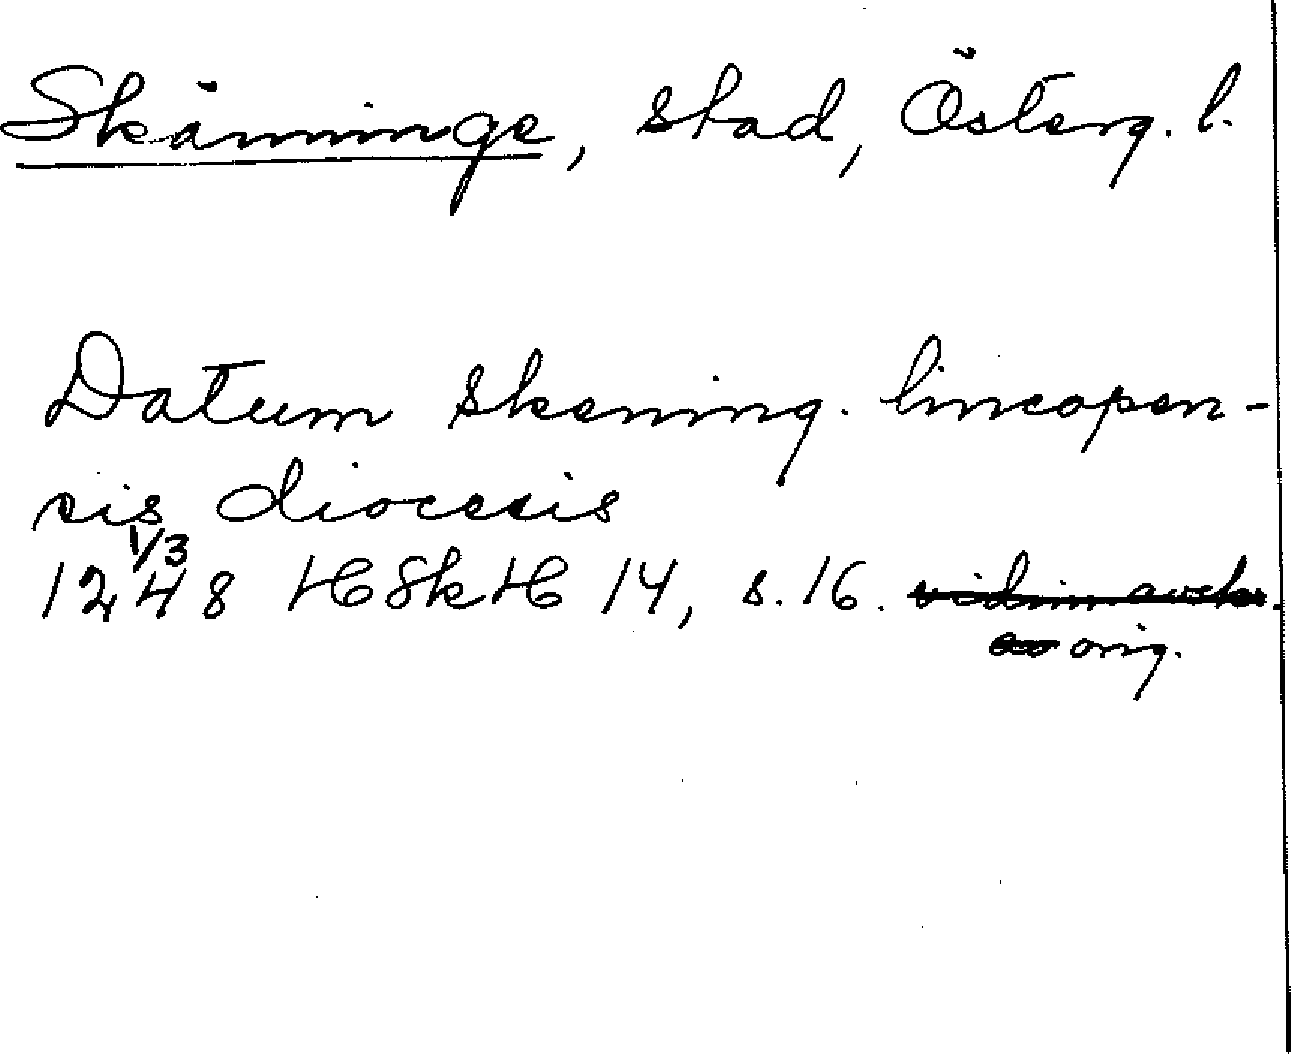 Skänninge, stad, Österg. l.
Datum skening. lincopen-
sis diocesis
1/3
1248 HSkH 14, s. 16.
orig.